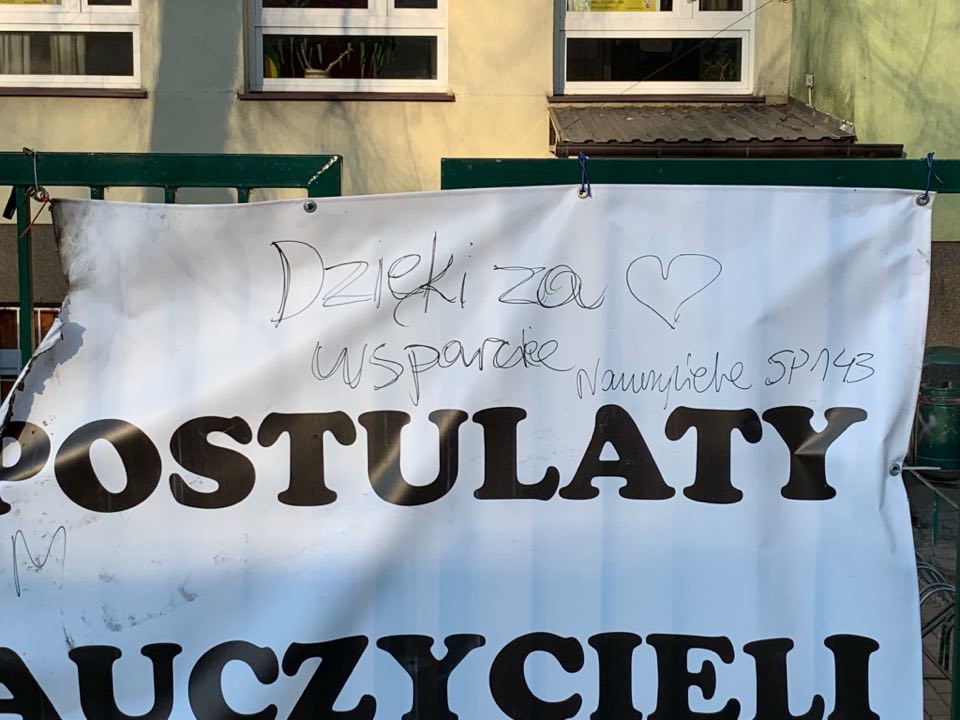 Dzięki za
wsparcie
Nauczyciele SP143
POSTULATY
M
AUCZYCIELI